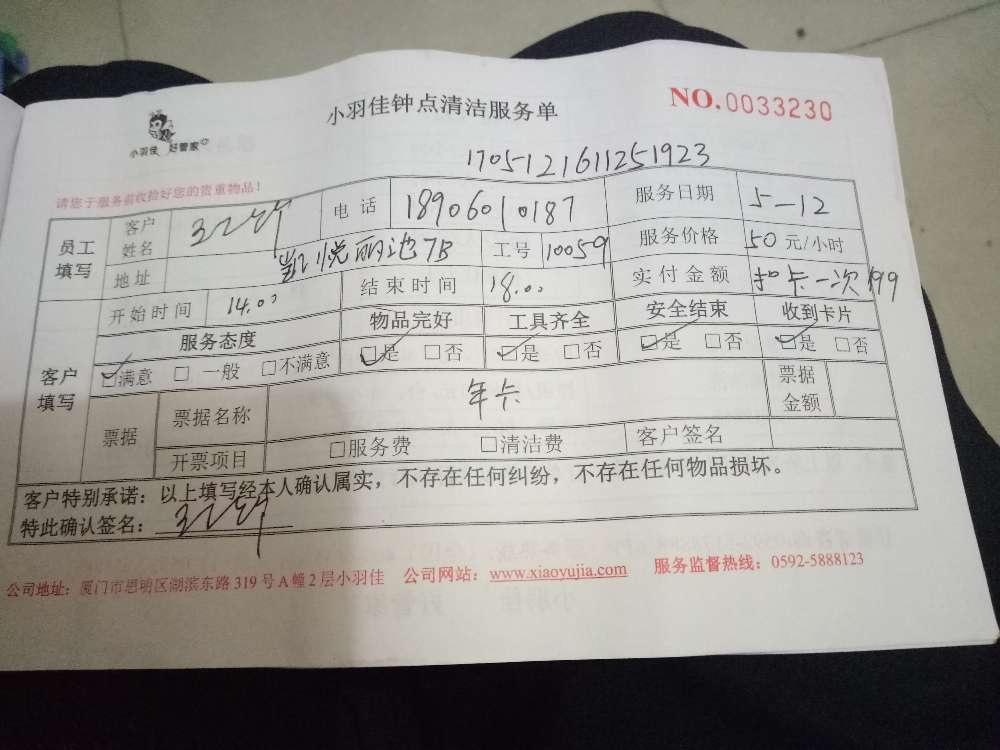 小羽佳钟点清洁服务单
NO.0033230
小羽佳 好管家
1705121611251923
请您于服务前收捡好您的贵重物品！
员工填写 客户姓名 电话 18906010187 服务日期 5-12
地址 凯悦丽池7B 工号 10059 服务价格 50元/小时
开始时间 14.00 结束时间 18.00 实付金额 扣卡一次199
客户填写 服务态度 物品完好 工具齐全 安全结束 收到卡片
满意 一般 不满意 是 否 是 否 是 否 是 否
票据 票据名称 年卡 票据金额
开票项目 服务费 清洁费 客户签名
客户特别承诺：以上填写经本人确认属实，不存在任何纠纷，不存在任何物品损坏。
特此确认签名：
公司地址：厦门市思明区湖滨东路319号A幢2层小羽佳 公司网站：www.xiaoyujia.com 服务监督热线：0592-5888123